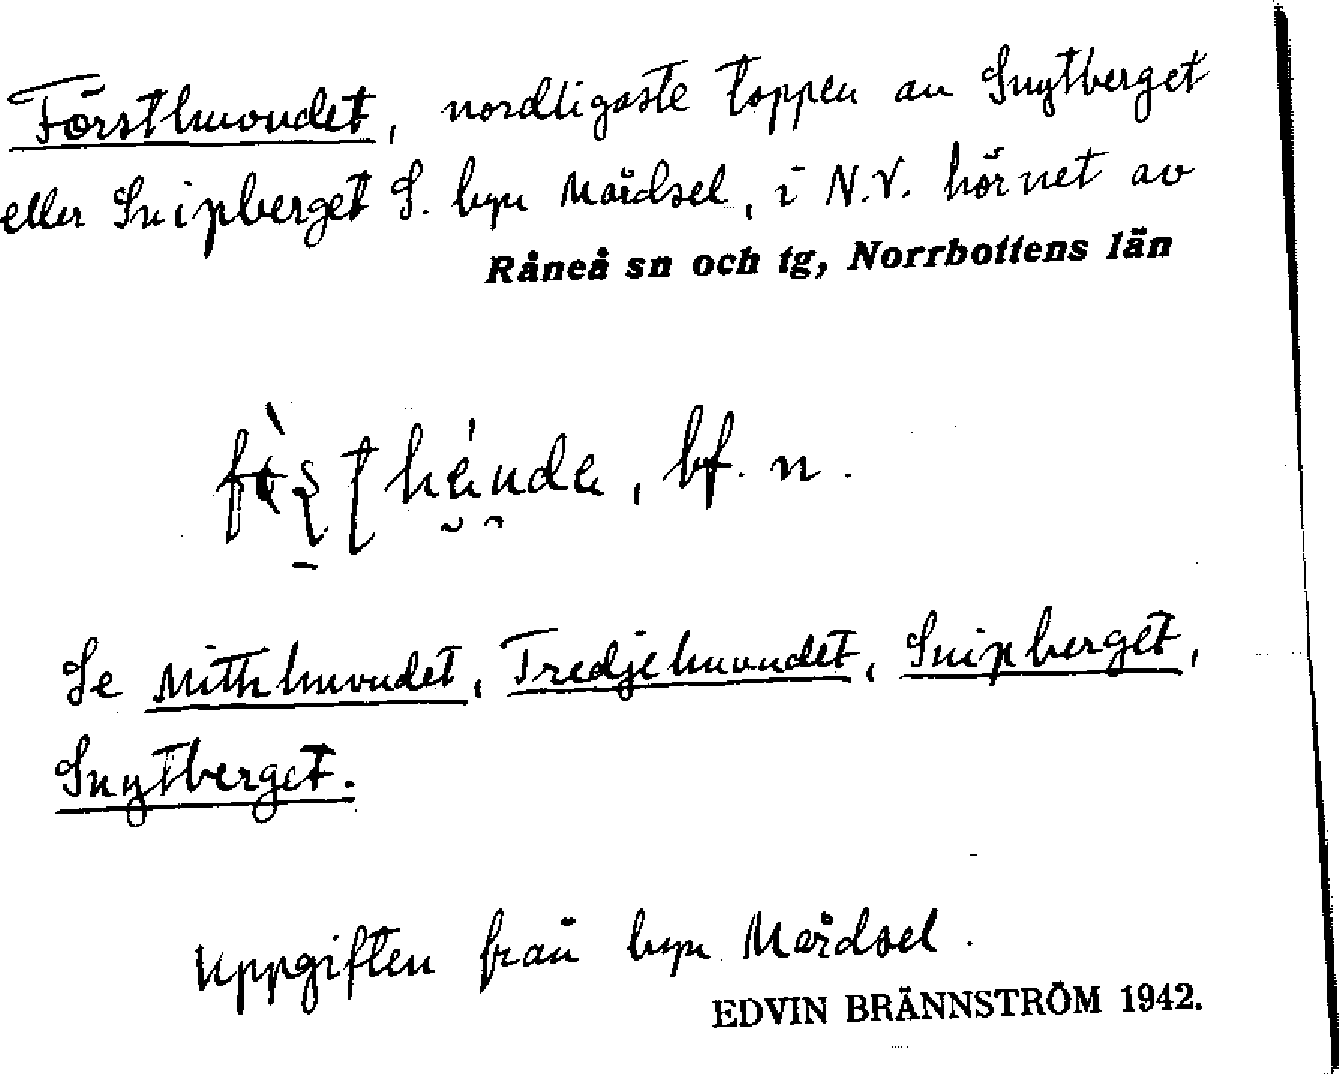 Försthuvudet, nordligaste toppen av Snytberget
eller Snipberget S. byn Mårdsel, i N.V. hörnet av
Råneå sn och tg, Norrbottens län
bf. n.
Se Mitthuvudet, Tredjehuvudet, Snipberget,
Snytberget.
Uppgiften från byn Mårdsel.
EDVIN BRÄNNSTRÖM 1942.